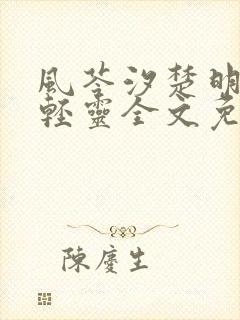 風荃汐楚明
輕靈全文免
陳慶生